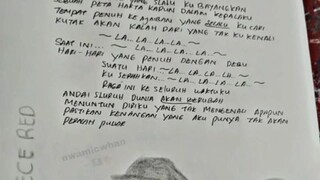 YANG SLALU KU BAYANGKAN
SEBUAH PETA HARTA KARUN DALAM KEPALAKU
TEMPAT PENUH KEAJAIBAN YANG SELALU KU CARI
KUTAK AKAN KALAH DARI YANG TAK KU KENALI
~ LA... LA.. LA.. LA ~
~ LA... LA.. LA.. LA ~
SAAT INI...
HARI-HARI YANG PENUH DENGAN DEBU
SUATU HARI ~ LA.. LA.. LA.. LA ~
KU SERAHKAN... ~ LA.. LA.. LA.. LA ~
INI KE SELURUH WAKTUKU
ANDAI SLURUH DUNIA AKAN BERUBAH
MENUNTUN DIRIKU YANG TAK MENGENAL APAPUN
PASTIKAN KENANGAN YANG AKU PUNYA TAK AKAN
PERNAH PUDAR
ECE RED